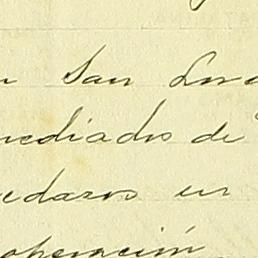 San Lor
mediados de
quedaron en
operación